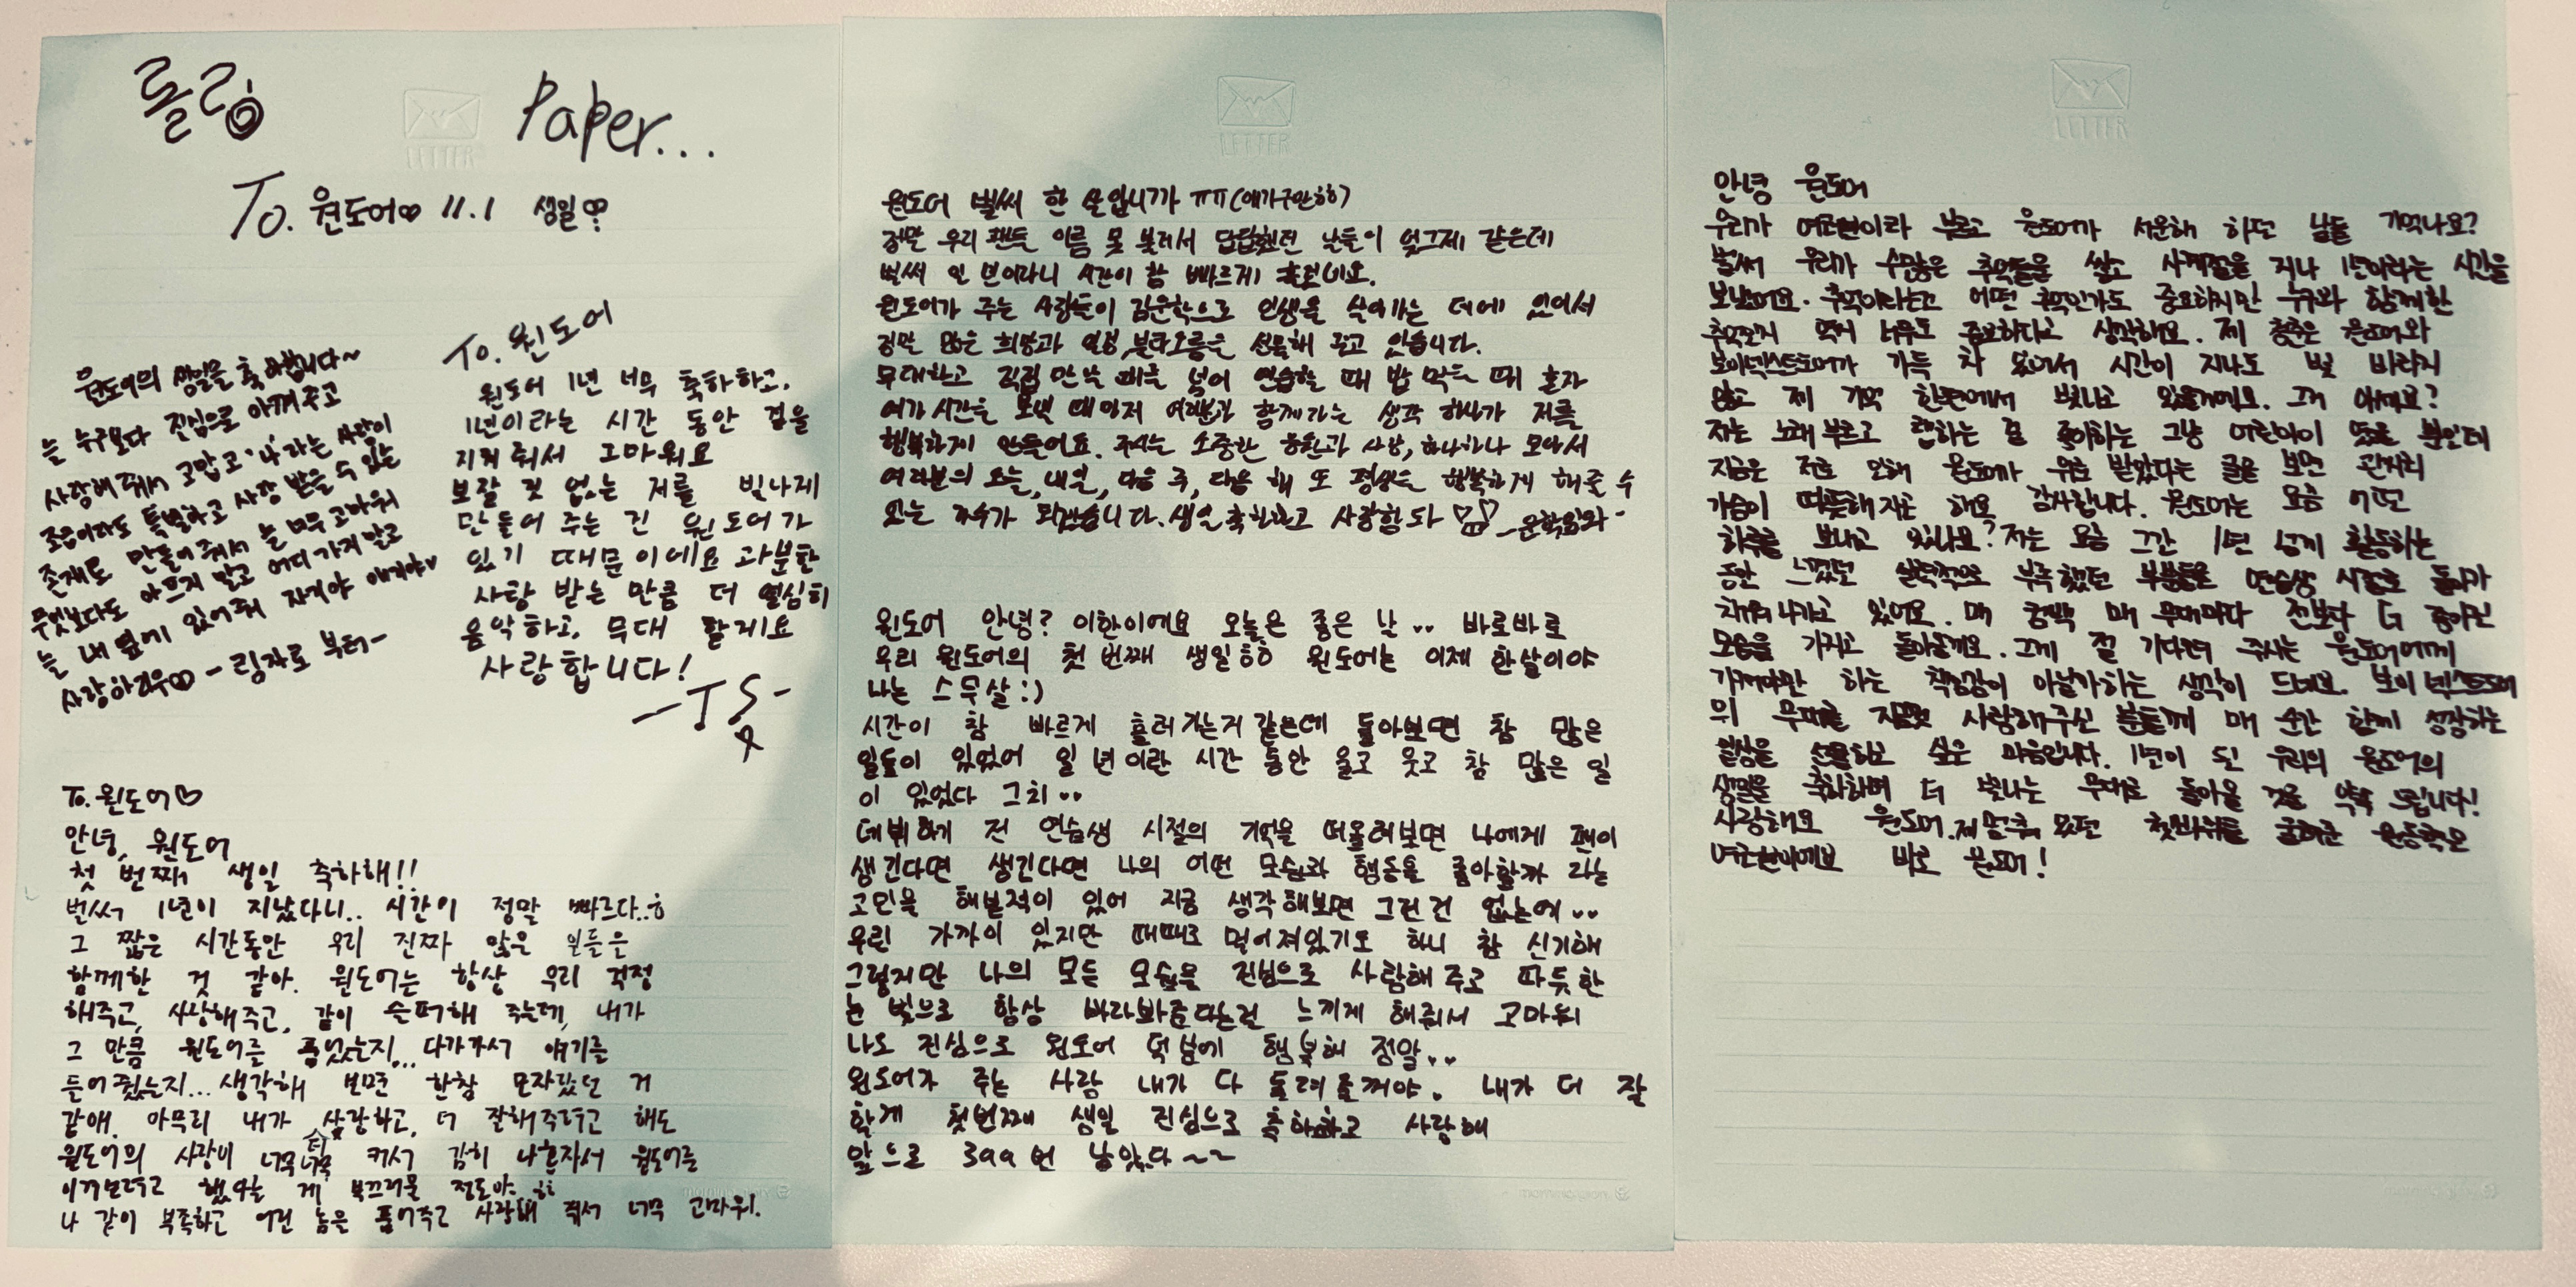 롤링 Paper...
LETTER
To. 원도어♡ 11.1 생일♡
원도어의 생일을 축하합니다~
늘 누구보다 진심으로 아껴주고
사랑해줘서 고맙고 '나'라는 사람이
조금이라도 특별하고 사랑 받을 수 있는
존재로 만들어줘서 늘 너무 고마워
무엇보다도 아프지 말고 어디 가지 말고
늘 내 옆에 있어줘 자기야 애기야♡
사랑하리우♡ - 림자로 부터-
To. 원도어
원도어 1년 너무 축하하고,
1년이라는 시간 동안 곁을
지켜 줘서 고마워요
보잘 것 없는 저를 빛나게
만들어 주는 건 원도어가
있기 때문이에요 과분한
사랑 받는 만큼 더 열심히
음악하고, 무대 할게요
사랑합니다!
-TS-
To. 원도어♡
안녕, 원도어
첫 번째 생일 축하해!!
벌써 1년이 지났다니.. 시간이 정말 빠르다..ㅎ
그 짧은 시간동안 우리 진짜 많은 일들을
함께한 것 같아. 원도어는 항상 우리 걱정
해주고, 사랑해주고, 같이 슬퍼해 주는데, 내가
그 만큼 원도어를 품었는지... 다가가서 얘기를
들어줬는지... 생각해 보면 한참 모자랐던 거
같애. 아무리 내가 사랑하고, 더 잘해주려고 해도
원도어의 사랑이 너무너무 커서 감히 나혼자서 원도어를
이겨보려고 했다는 게 부끄러울 정도야. ㅎㅎ
나 같이 부족하고 어린 놈을 품어주고 사랑해 줘서 너무 고마워.
LETTER
원도어 벌써 한 살입니까 ㅠㅠ (애기구만ㅎㅎ)
정말 우리 팬들 이름 못 불러서 답답했던 날들이 엊그제 같은데
벌써 일 년이라니 시간이 참 빠르게 흐르네요.
원도어가 주는 사랑들이 김운학으로 인생을 살아가는 데에 있어서
정말 많은 희망과 열정, 불타오름을 선물해 주고 있습니다.
무대하고 직접 만날 때를 넘어 연습할 때 밥 먹을 때 혼자
여가 시간을 보낼 때마저 여러분과 함께라는 생각 하나가 저를
행복하게 만들어요. 주시는 소중한 응원과 사랑, 하나하나 모아서
여러분의 오늘, 내일, 다음 주, 다음 해 또 평생을 행복하게 해줄 수
있는 가수가 되겠습니다. 생일 축하하고 사랑합니다 -운학이와-
원도어 안녕? 이한이에요 오늘은 좋은 날.. 바로바로
우리 원도어의 첫 번째 생일 ㅎㅎ 원도어는 이제 한살이야
나는 스무살 :)
시간이 참 빠르게 흘러가는거 같은데 돌아보면 참 많은
일들이 있었어 일 년이란 시간 동안 울고 웃고 참 많은 일
이 있었다 그치..
데뷔하기 전 연습생 시절의 기억을 떠올려보면 나에게 팬이
생긴다면 생긴다면 나의 어떤 모습과 행동을 좋아할까 라는
고민을 해본적이 있어 지금 생각해보면 그런건 없는데..
우린 가까이 있지만 때때로 멀어져있기도 하니 참 신기해
그렇지만 나의 모든 모습을 진심으로 사랑해주고 따듯한
눈 빛으로 항상 바라봐준다는걸 느끼게 해줘서 고마워
나도 진심으로 원도어 덕분에 행복해 정말..
원도어가 주는 사랑 내가 다 돌려줄꺼야. 내가 더 잘
할게 첫번째 생일 진심으로 축하하고 사랑해
앞으로 399번 남았다~~
LETTER
안녕 원도어
우리가 여러분이라 부르고 원도어가 서운해 하던 날들 기억나요?
벌써 우리가 수많은 추억들을 쌓고 사계절을 지나 1년이라는 시간을
보냈어요. 추억이라는건 어떤 추억인가도 중요하지만 누구와 함께한
추억인지 역시 너무도 중요하다고 생각해요. 제 청춘은 원도어와
보이넥스트도어가 가득 차 있어서 시간이 지나도 빛 바래지
않고 제 기억 한편에서 빛나고 있을거에요. 그거 아세요?
저는 노래 부르고 랩하는 걸 좋아하는 그냥 어린아이 였을 뿐인데
지금은 저로 인해 원도어가 위로 받았다는 글을 보면 괜시리
가슴이 따뜻해지곤 해요 감사합니다. 원도어는 요즘 어떤
하루를 보내고 있나요? 저는 요즘 그간 1년 넘게 활동하는
동안 느꼈던 실력적으로 부족했던 부분들을 연습생 시절로 돌아가
채워 나가고 있어요. 매 컴백 매 무대마다 전보다 더 좋아진
모습을 가지고 돌아올게요. 그게 절 기다려 주시는 원도어에게
가져야만 하는 책임감이 아닐까하는 생각이 드네요. 보이넥스트도어
의 무대를 지금껏 사랑해주신 분들께 매 순간 함께 성장하는
일상을 선물하고 싶은 마음입니다. 1년이 된 우리의 원도어의
생일을 축하하며 더 빛나는 무대로 돌아올 것을 약속 드립니다!
사랑해요 원도어. 제 멈춰 있던 첫바퀴를 굴려준 원동력은
여러분이에요 바로 원도어!